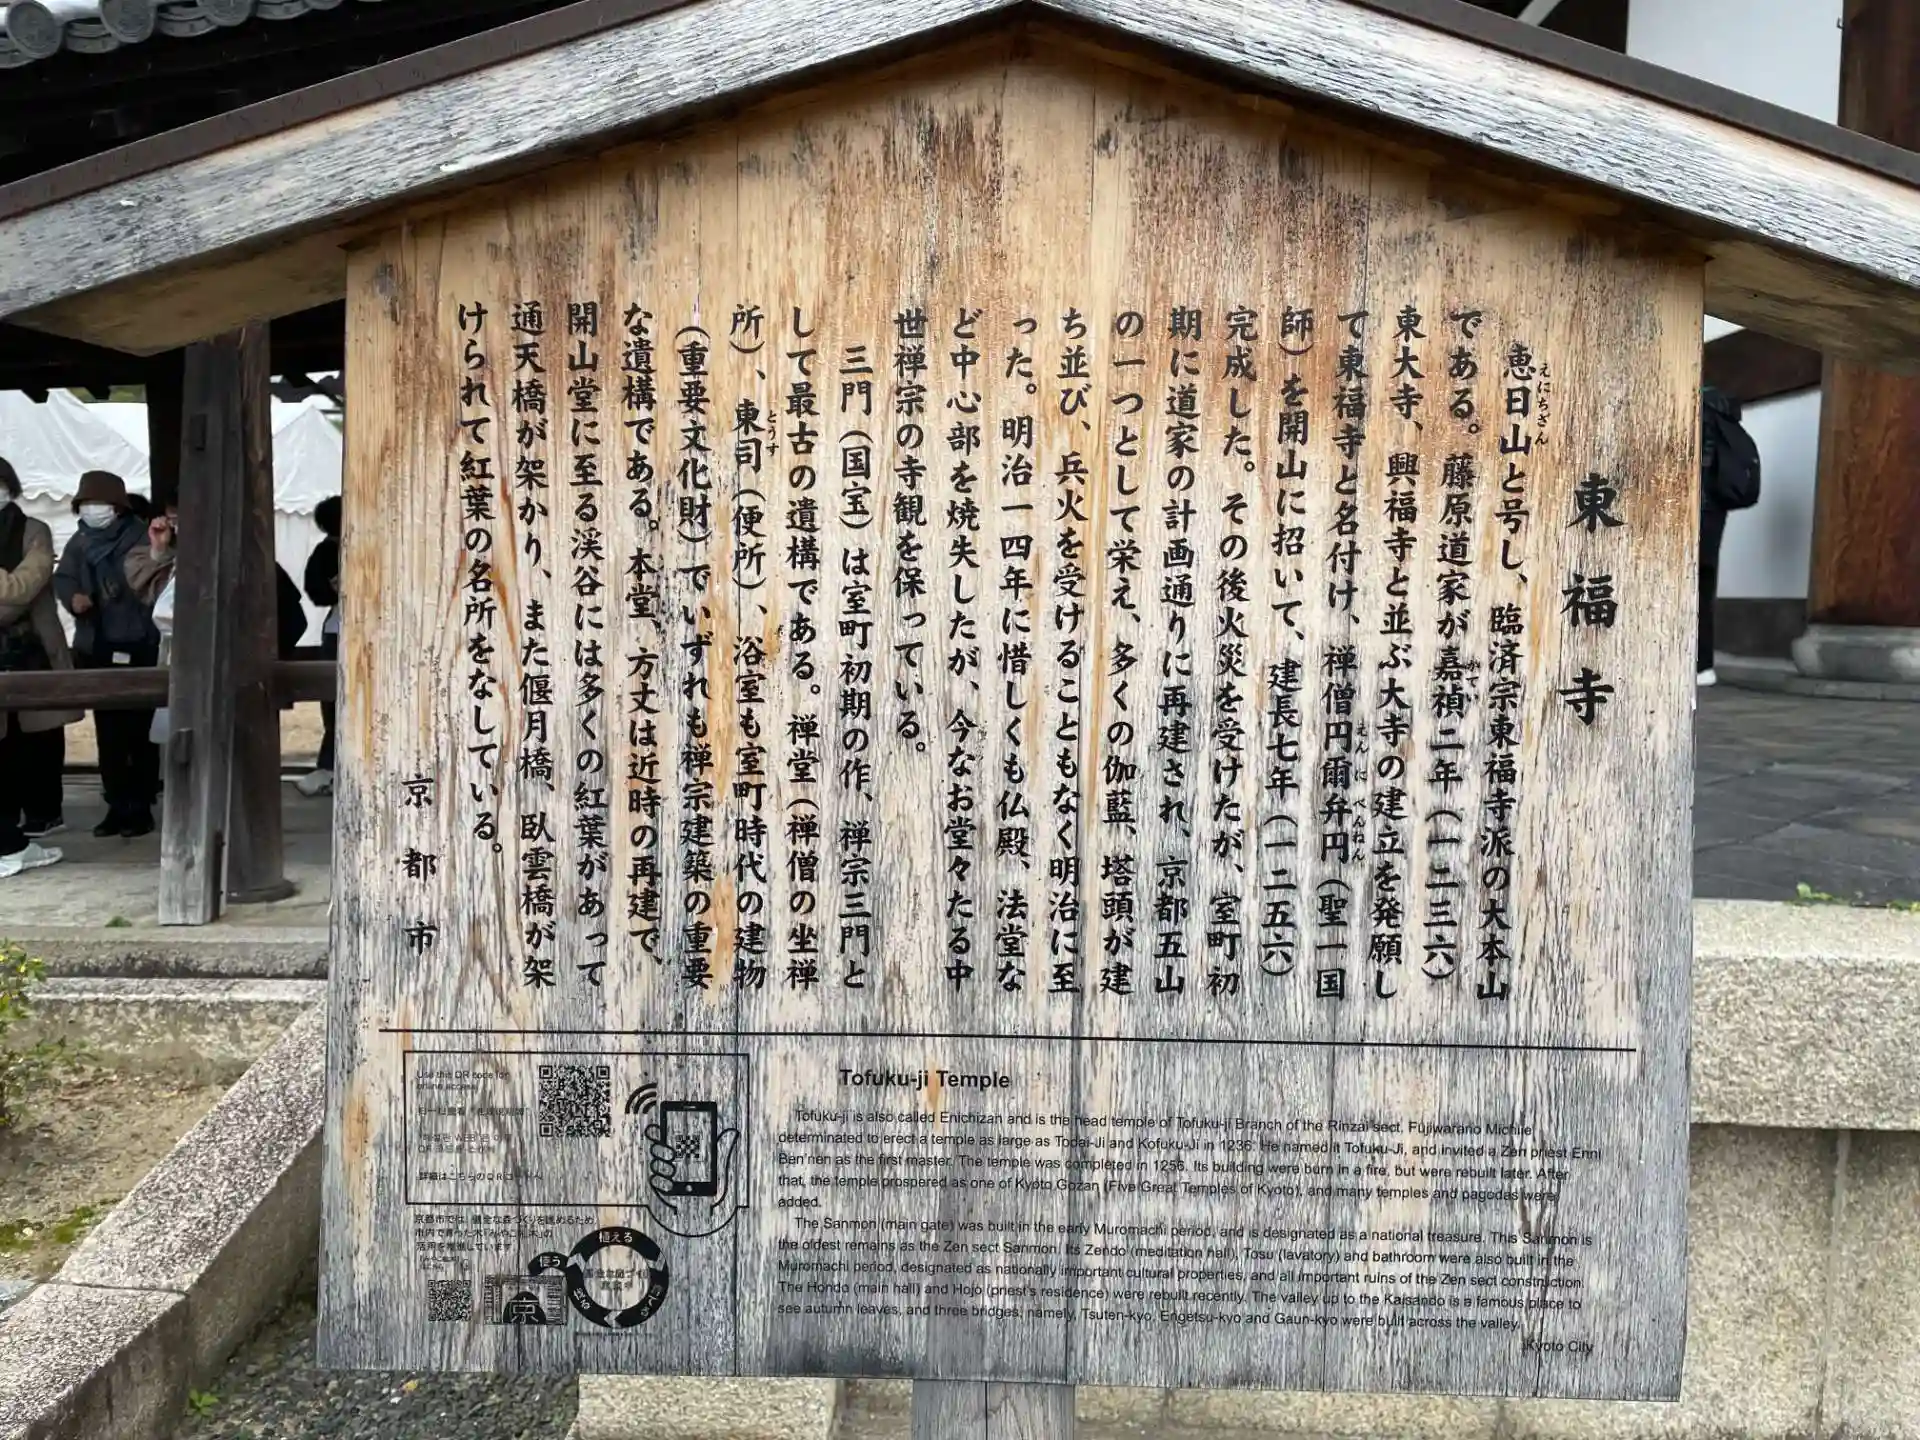 東福寺
恵日山と号し、臨済宗東福寺派の大本山
えにちざん
である。藤原道家が嘉禎二年（一二三六）
かてい
東大寺、興福寺と並ぶ大寺の建立を発願し
て東福寺と名付け、禅僧円爾弁円（聖一国
えんに べんねん
師）を開山に招いて、建長七年（一二五六）
完成した。その後火災を受けたが、室町初
期に道家の計画通りに再建され、京都五山
の一つとして栄え、多くの伽藍、塔頭が建
ち並び、兵火を受けることもなく明治に至
った。明治一四年に惜しくも仏殿、法堂な
ど中心部を焼失したが、今なお堂々たる中
世禅宗の寺観を保っている。
三門（国宝）は室町初期の作、禅宗三門と
して最古の遺構である。禅堂（禅僧の坐禅
所）、東司（便所）、浴室も室町時代の建物
とうす
（重要文化財）でいずれも禅宗建築の重要
な遺構である。本堂、方丈は近時の再建で、
開山堂に至る渓谷には多くの紅葉があって
通天橋が架かり、また偃月橋、臥雲橋が架
けられて紅葉の名所をなしている。
京都市
Use this QR code for
online access
詳細はこちらのQRコードへ
京都市では、健全な森づくりを進めるため、
市内で育った木「みやこ杣木」の
活用を推進しています。
植える
使う
京
Tofuku-ji Temple
Tofuku-ji is also called Enichizan and is the head temple of Tofuku-ji Branch of the Rinzai sect. Fujiwarano Michiie
determined to erect a temple as large as Todai-Ji and Kofuku-Ji in 1236. He named it Tofuku-Ji, and invited a Zen priest Enni
Ben'nen as the first master. The temple was completed in 1256. Its building were burn in a fire, but were rebuilt later. After
that, the temple prospered as one of Kyoto Gozan (Five Great Temples of Kyoto), and many temples and pagodas were
added.
The Sanmon (main gate) was built in the early Muromachi period, and is designated as a national treasure. This Sanmon is
the oldest remains as the Zen sect Sanmon. Its Zendo (meditation hall), Tosu (lavatory) and bathroom were also built in the
Muromachi period, designated as nationally important cultural properties, and all important ruins of the Zen sect construction.
The Hondo (main hall) and Hojo (priest's residence) were rebuilt recently. The valley up to the Kaisando is a famous place to
see autumn leaves, and three bridges, namely, Tsuten-kyo, Engetsu-kyo and Gaun-kyo were built across the valley.
Kyoto City